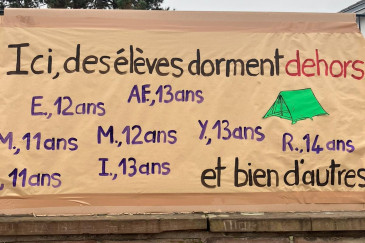 Ici, des élèves dorment dehors
E., 12 ans AF., 13 ans
M., 11 ans M., 12 ans Y., 13 ans R., 14 ans
., 11 ans I., 13 ans et bien d'autres